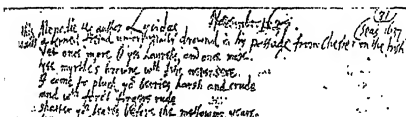 Lycidas November 1637
author
a learned friend unfortunatly drownd in his passage from Chester on the Irish seas 1637
Yet once more O ye laurells, and once more
ye myrtle's browne wth Ivie never sere
I come to pluck yr berries harsh and crude
and wth forc't fingers rude
shatter yr leaves before the mellowing yeare